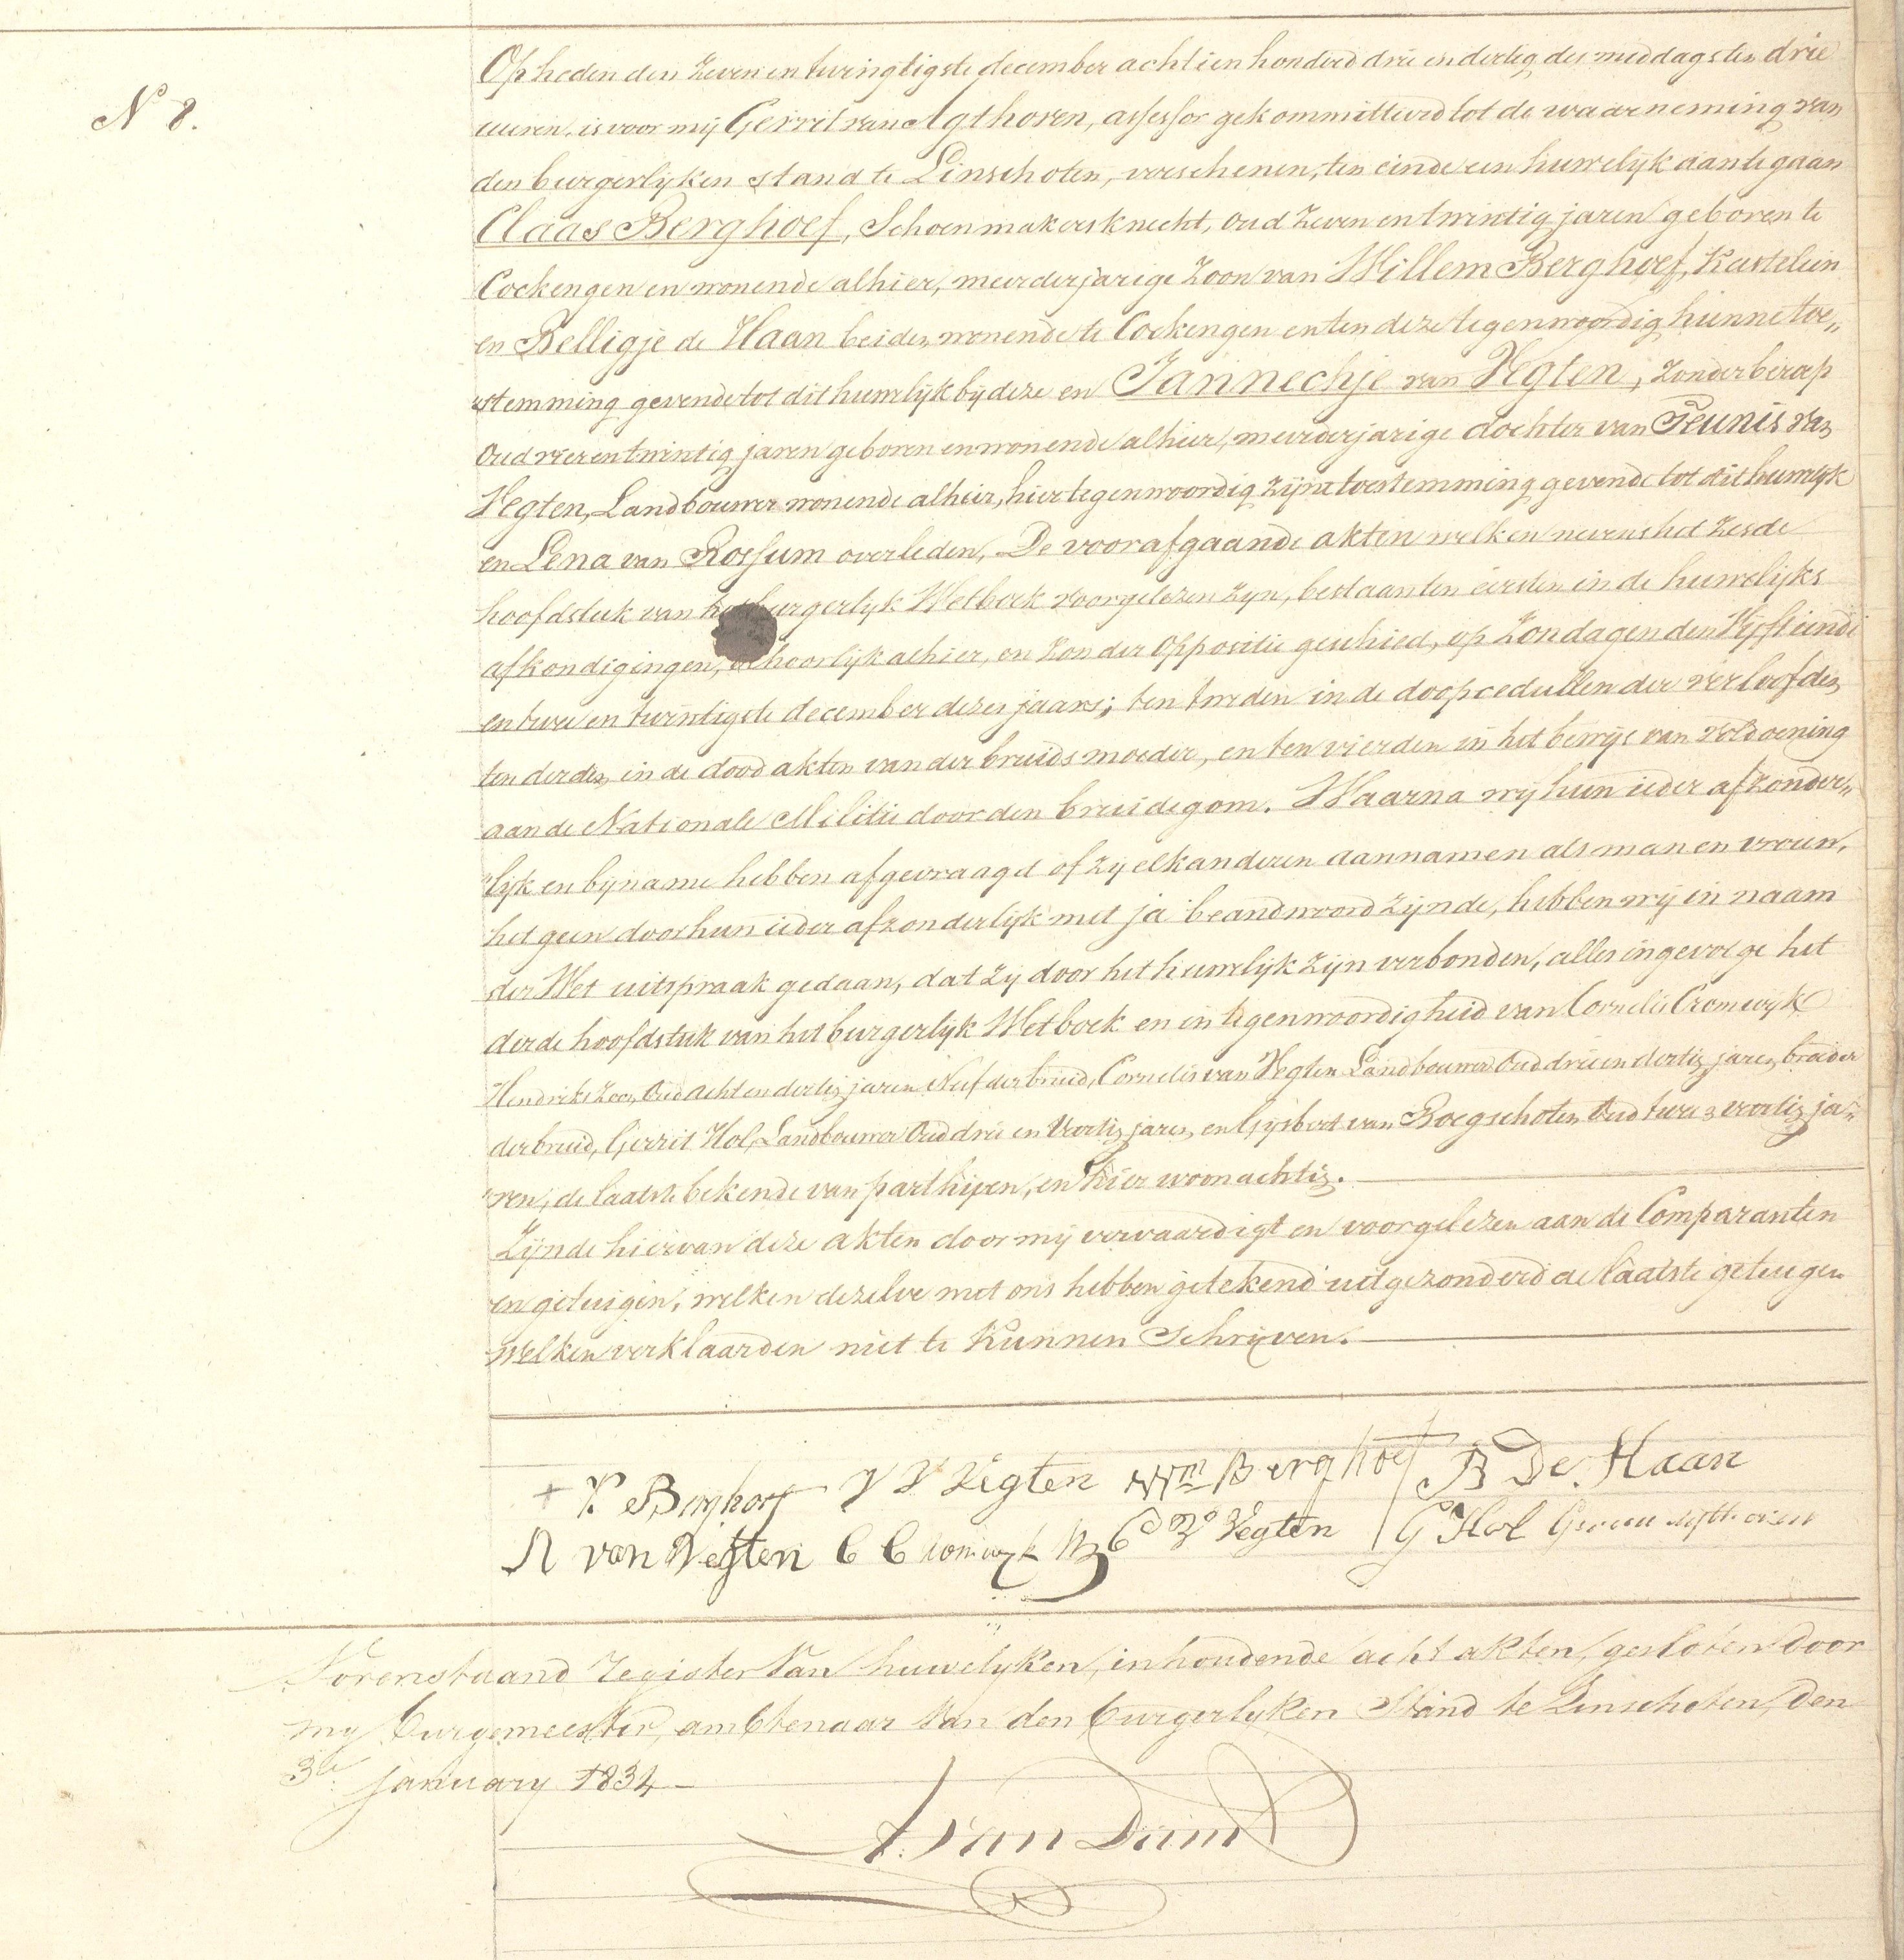 N 8.
Op heden den Zeven en twingtigste december achtien honderd drie en dertig des middags ten drie
uuren, is voor mij Gerrit van Agthoven, assessor gekommitteerd tot de waarneming van
den burgerlyken stand te Linschoten, verschenen, ten einde een huwelijk aan te gaan
Claas Berghoef, Schoenmakersknecht, oud Zeven en twintig jaren geboren te
Cockengen en wonende alhier, meerderjarige Zoon van Willem Berghoef, Kastelein
en Belligje de Haan beiden wonende te Cockengen en ten deze tegenwoordig hunne toe„
„stemming gevende tot dit huwelijk by deze en Jannechje van Vegten, Zonder beroep
Oud vier en twintig jaren geboren en wonende alhier, meerderjarige dochter van Teunis van
Vegten, Landbouwer wonende alhier, hier tegenwoordig zijne toestemming gevende tot dit huwelyk
en Lena van Rossum overleden, De voorafgaande akten welken nevens het Zesde
hoofdstuk van het burgerlyk Wetboek voorgelezen zyn, bestaan ten eersten in de huwelijks
afkondigingen, behoorlijk alhier, en Zonder Oppositie geschied, op Zondagen den Vyftiende
en twee en twintigste december dezes jaars; ten tweden in de doopcedullen der verloofden
ten derden in de dood akten van der bruids moeder, en ten vierden in het bewys van voldoening
aan de Nationale Militie door den bruidegom. Waarna wij hun ieder afzonder„
„lijk en bijname hebben afgevraagd of zy elkanderen aannamen als man en vrouw,
het geen door hun ieder afzonderlijk met ja beandwoord zijnde, hebben wij in naam
der Wet uitspraak gedaan, dat zy door het huwelijk zijn verbonden, alles ingevolge het
derde hoofdstuk van het burgerlyk Wetboek en in tegenwoordigheid van Cornelis Cromwijk
Hendriks Zoon, Oud acht en dertig jaren Neef der bruid, Cornelis van Vegten Landbouwer Oud drie en dertig jaren broeder
der bruid, Gerrit Hol, Landbouwer Oud drie en Veertig jaren, en Gijsbert van Boegschoten Oud twee & veertig ja„
„ren, de laatste bekende van parthijen, en hier woonachtig.
Zijnde hiervan deze akten door mij vervaardigt en voorgelezen aan de Comparanten
en getuigen, welken dezelve met ons hebben getekend uitgezonderd de laatste getuigen
Welken verklaarden niet te Kunnen Schrijven.
K Berghoef J V Vegten Wm Berghoef B De Haan
van Vegten C Cromwyk Hz Cs Vn Vegten G Hol Gerrit van Agthoven
Vorenstaand register van huwelyken, inhoudende acht akten, gesloten door
my Burgemeester, ambtenaar van den burgerlyken Stand te Linschoten, den
3de january 1834
A. van Dam